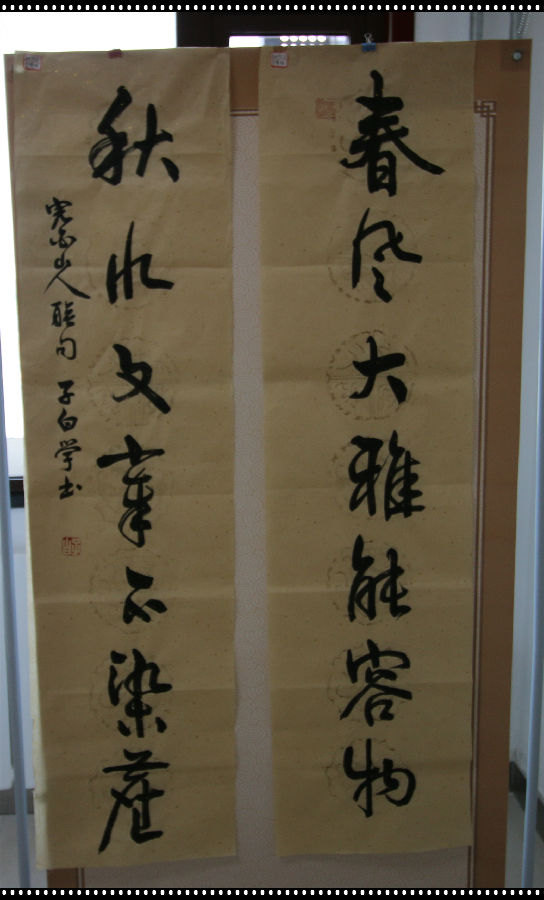 春风大雅能容物
秋水文章不染塵
完白山人聯句 子白学书